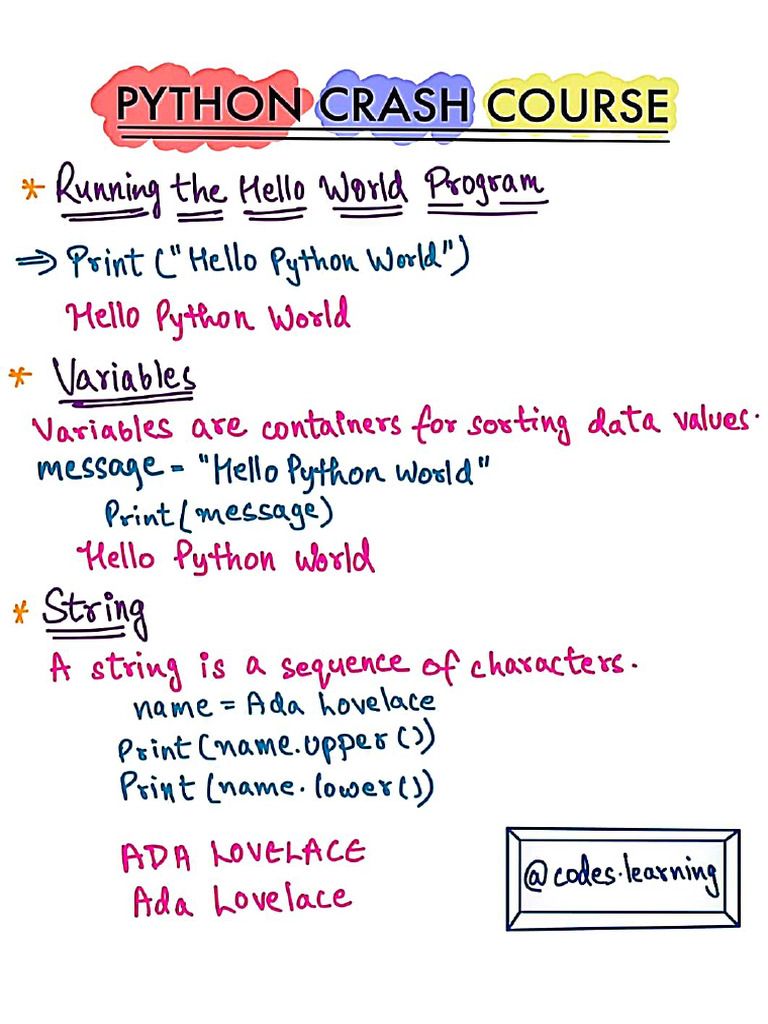 PYTHON CRASH COURSE
* Running the Hello World Program
⇒ Print ("Hello Python World")
Hello Python World
* Variables
Variables are containers for sorting data values.
message = "Hello Python World"
Print(message)
Hello Python World
* String
A string is a sequence of characters.
name = Ada Lovelace
Print(name.upper())
Print(name.lower())
ADA LOVELACE
Ada Lovelace
@codes.learning